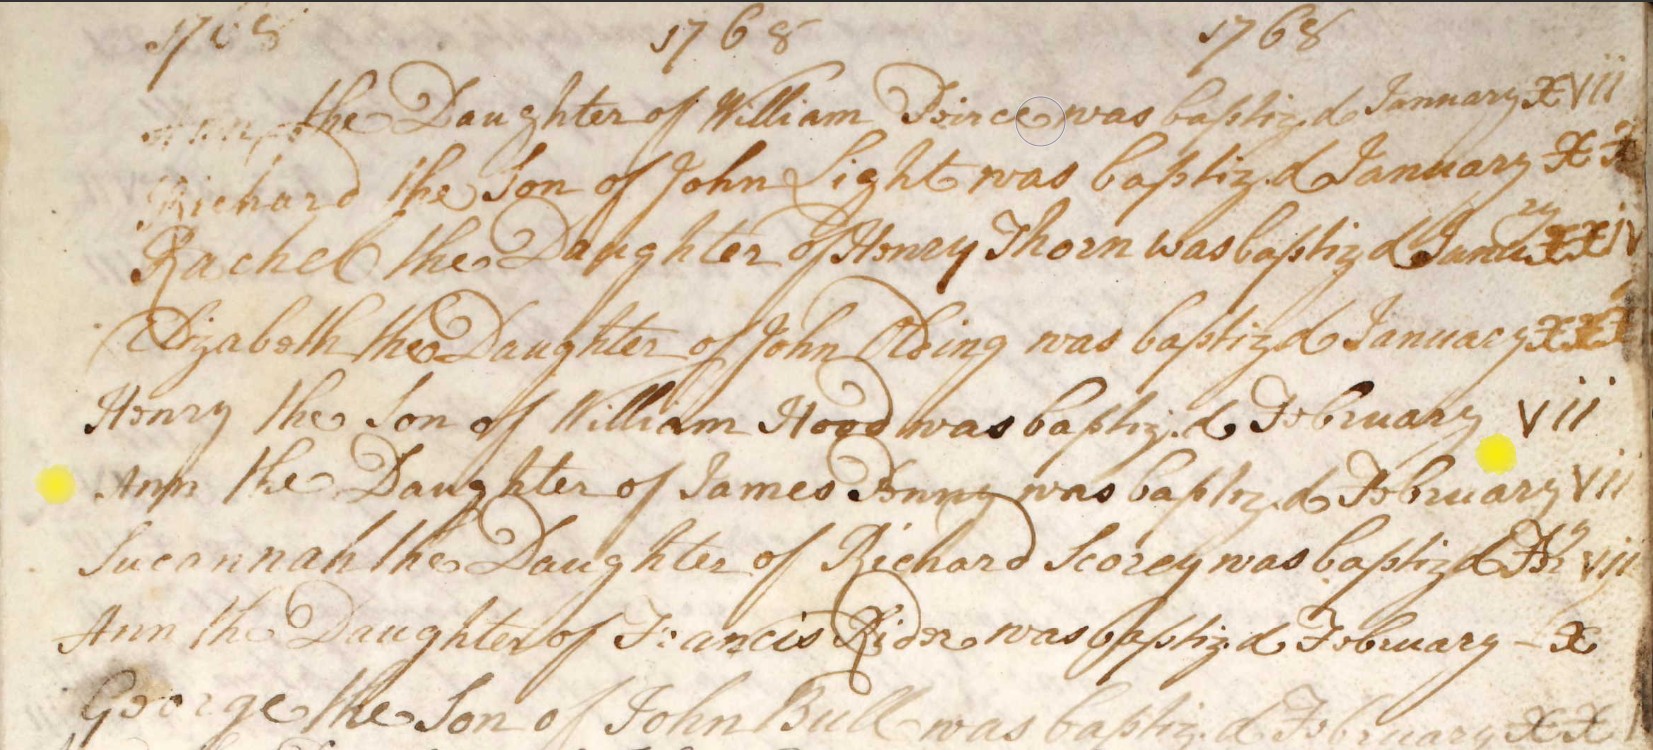 1768 1768 1768
Ann the Daughter of William Peirce was baptiz.d January XVii
Richard the Son of John Light was baptiz.d January XX
Rachel the Daughter of Henry Thorn was baptiz'd Janury XXiV
Elizabeth the Daughter of John Olding was baptizd January XXX
Henry the Son of William Hood was baptiz.d February Vii
Ann the Daughter of James was baptiz.d February Vii
Sucannah the Daughter of Richard Scorey was baptizd Vii
Ann the Daughter of Francis Rider was baptiz.d February – X
George the Son of John Bull was baptiz.d February XX